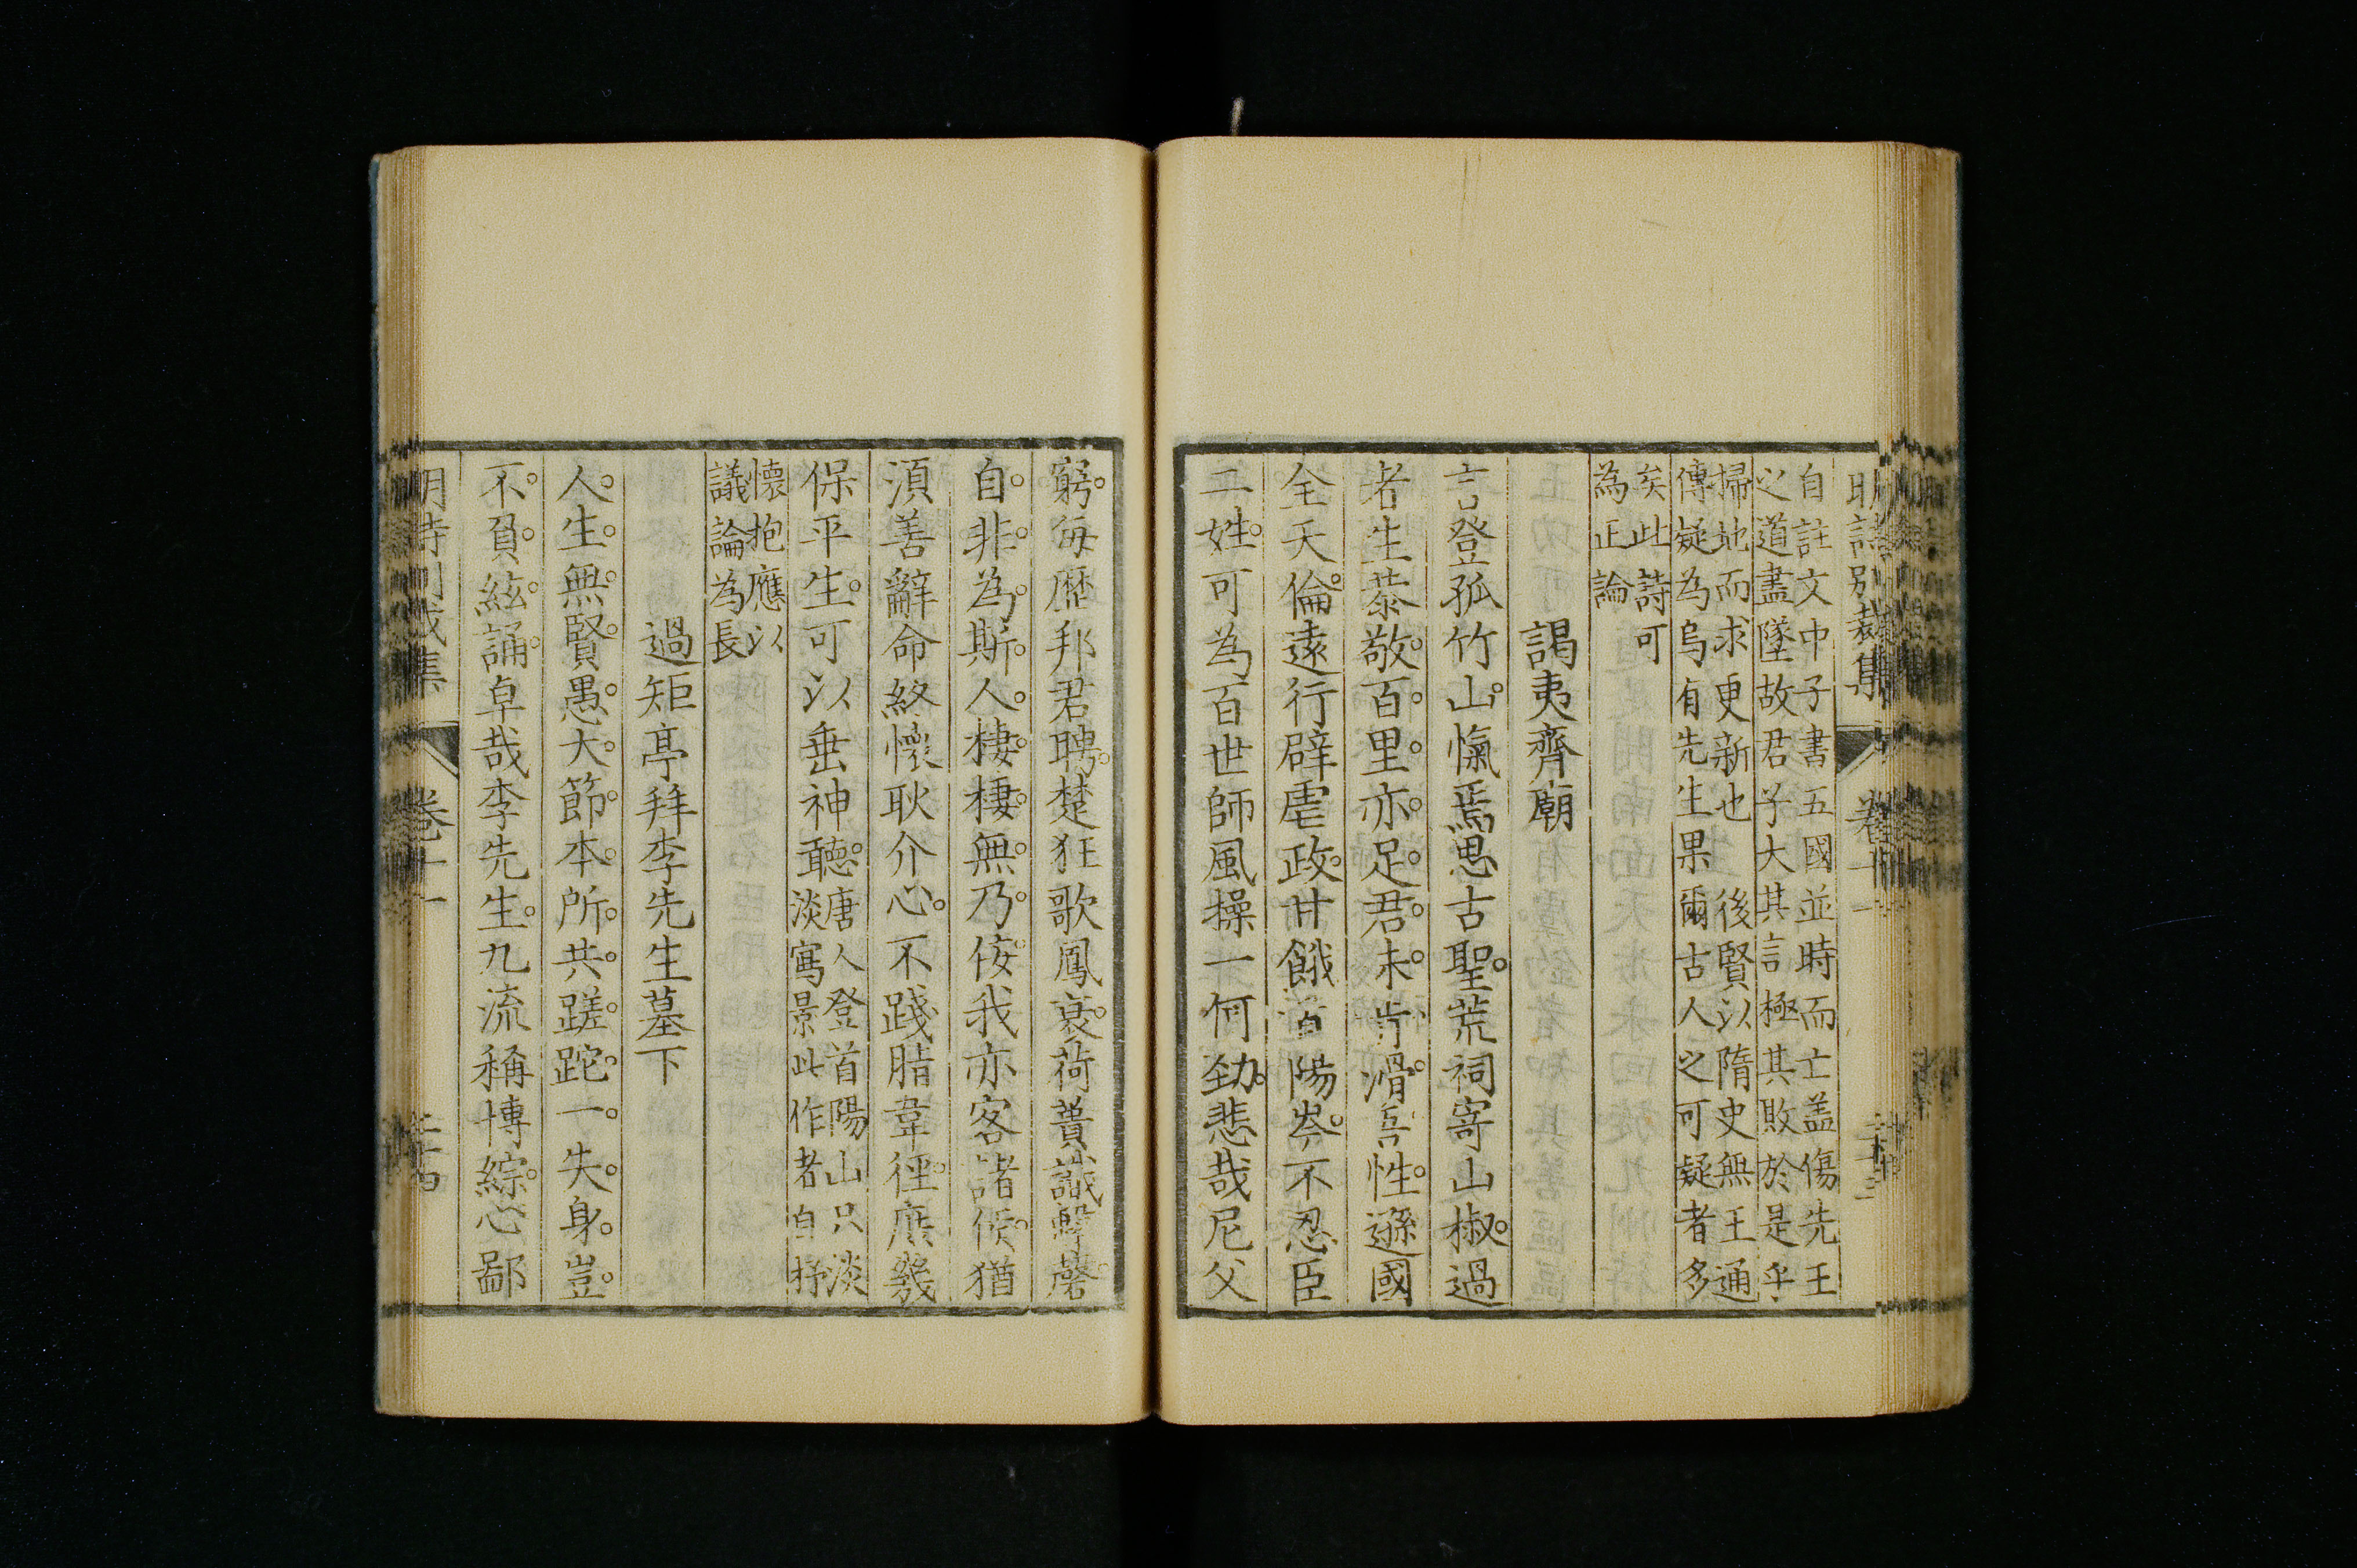 明詩別裁集 卷十一
自註文中子書五國並時而亡盖傷先王
之道盡墜故君子大其言極其敗於是乎
掃地而求更新也 後賢以隋史無王通
傳疑為烏有先生果爾古人之可疑者多
矣此詩可
為正論
謁夷齊廟
言登孤竹山愾焉思古聖荒祠寄山椒過
者生恭敬百里亦足君未肯滑吾性遜國
全天倫遠行辟虐政甘餓首陽岑不忍臣
二姓可為百世師風操一何勁悲哉尼父
窮每歷邦君聘楚狂歌鳳衰荷蕢譏擊磬
自非為斯人棲棲無乃佞我亦客諸侯猶
須善辭命終懷耿介心不踐脂韋徑庶幾
保平生可以垂神聽
唐人登首陽山只淡
淡寫景此作者自抒
懷抱應以
議論為長
過矩亭拜李先生墓下
人生無賢愚大節本所共蹉跎一失身豈
不負絃誦卓哉李先生九流稱博綜心鄙
明詩別裁集 卷十一